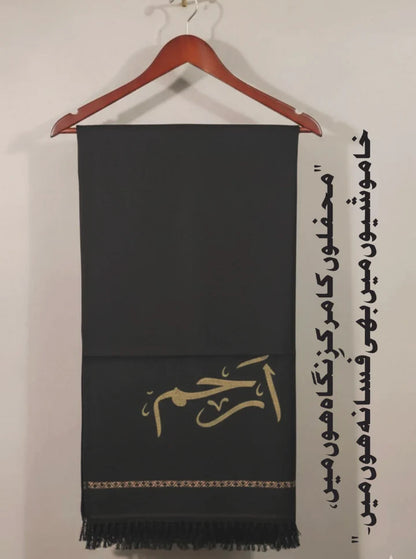 "محفلوں کا مرکزِ نگاہ ہوں میں،
خاموشیوں میں بھی فسانہ ہوں میں۔"
اَرحم